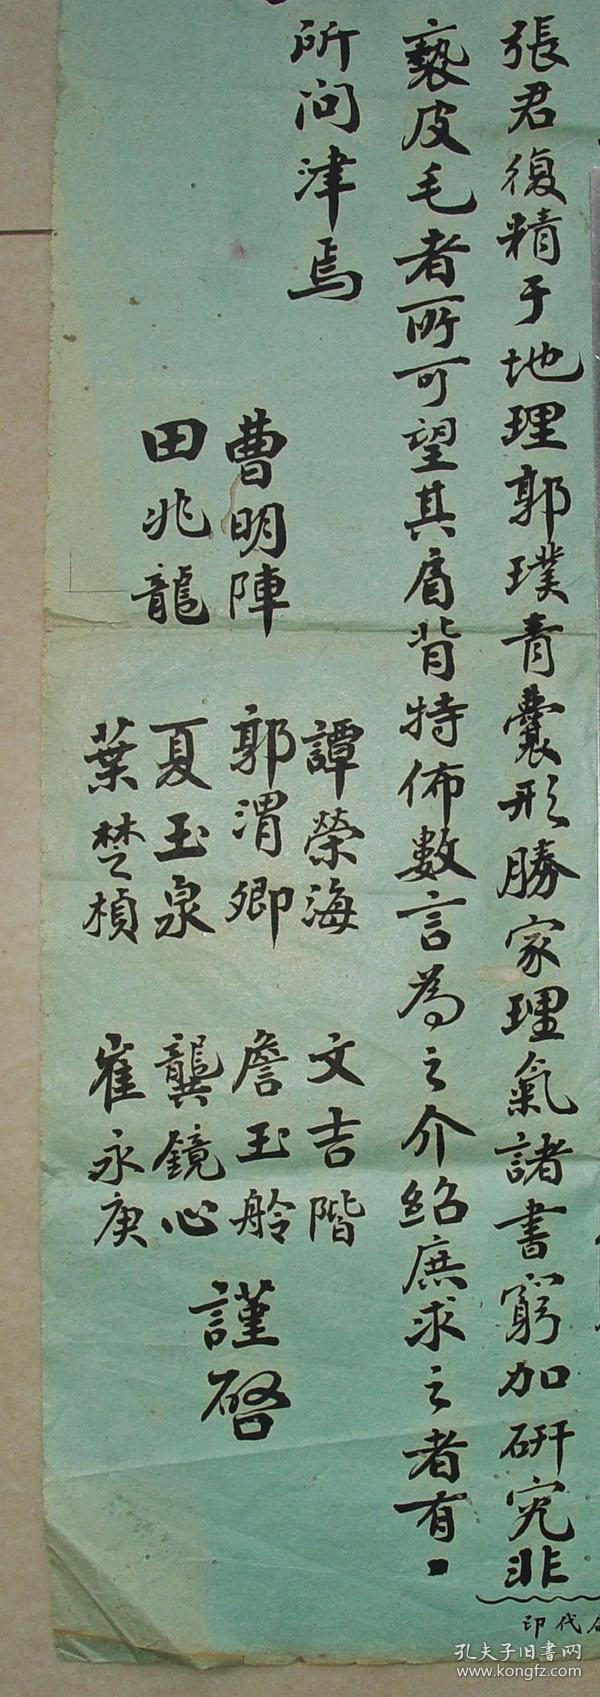 張君復精于地理郭璞青囊形勝家理氣諸書窮加研究非
褻皮毛者所可望其肩背特佈數言為之介紹庶求之者有
所问津焉
譚榮海 文吉階
曹明陣 郭渭卿 詹玉舲
田兆龍 夏玉泉 龔鏡心
葉楚楨 崔永庚
謹啓
代印
孔夫子旧書网
www.kongfz.com